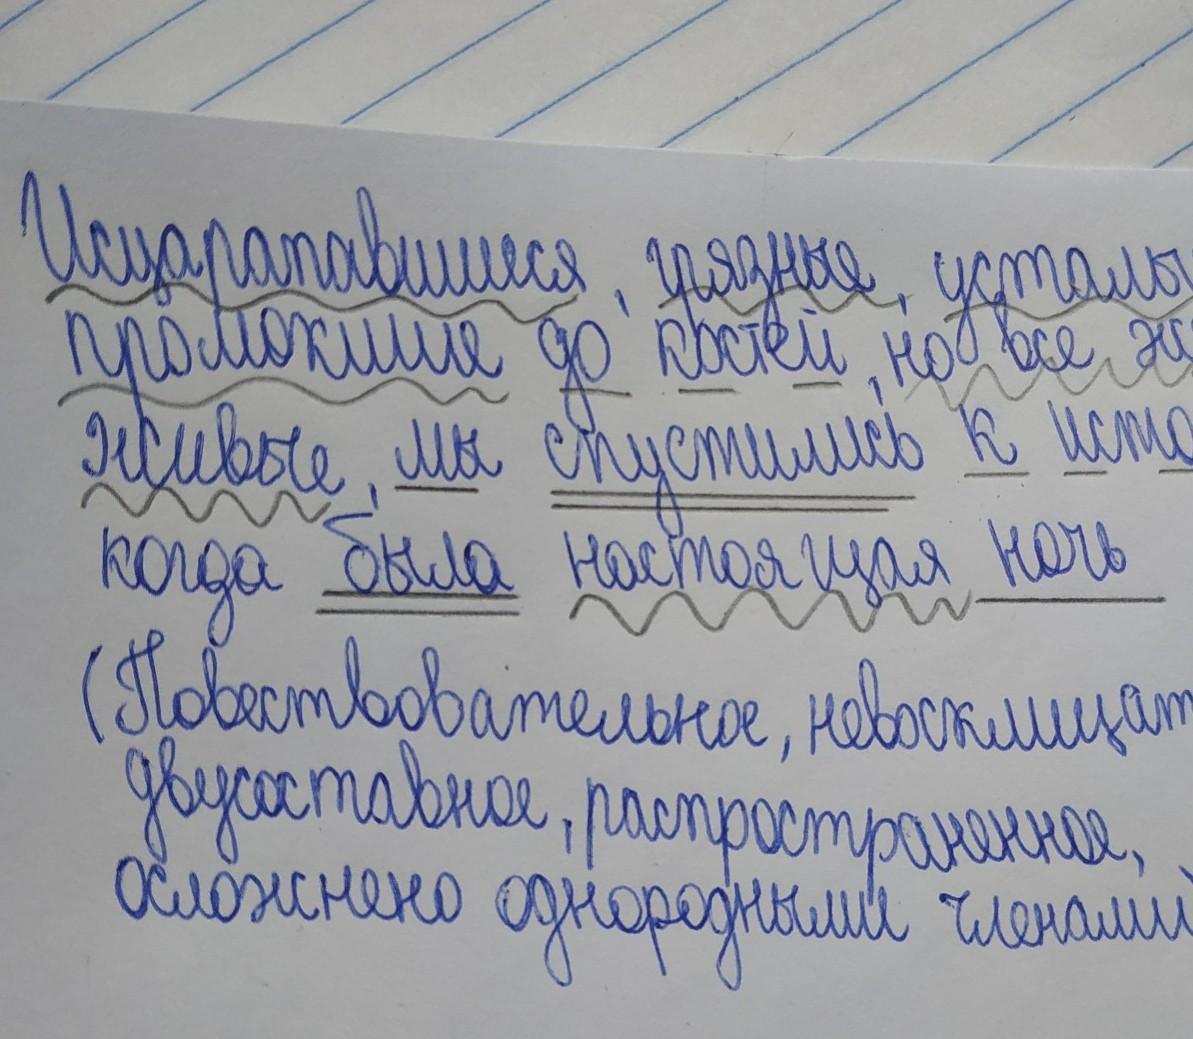 Исцарапавшиеся, грязные, усталы
промокшие до костей, но все ж
живые, мы спустились к исто
когда была настоящая ночь
(Повествовательное, невосклицат
двусоставное, распространенное,
осложнено однородными членами